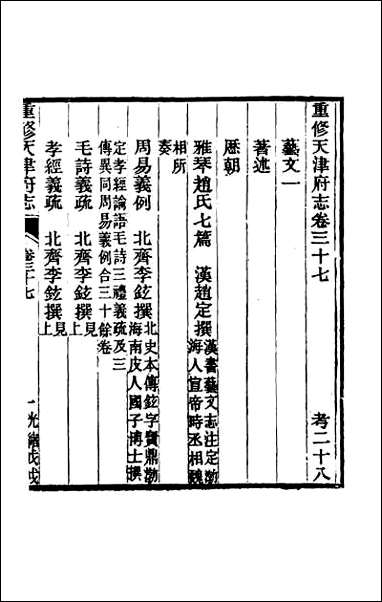 重修天津府志卷三十七　考二十八
藝文一
著述
歷朝
雅琴趙氏七篇　漢趙定撰漢書藝文志注定渤
海人宣帝時丞相魏
相所
奏
周易義例　北齊李鉉撰北史本傳鉉字寶鼎渤
海南皮人國子博士撰
定孝經論語毛詩三禮義疏及三
傳異同周易義例合三十餘卷
毛詩義疏　北齊李鉉撰見
上
孝經義疏　北齊李鉉撰見
上
重修天津府志　卷三十七　一　光緒戊戌